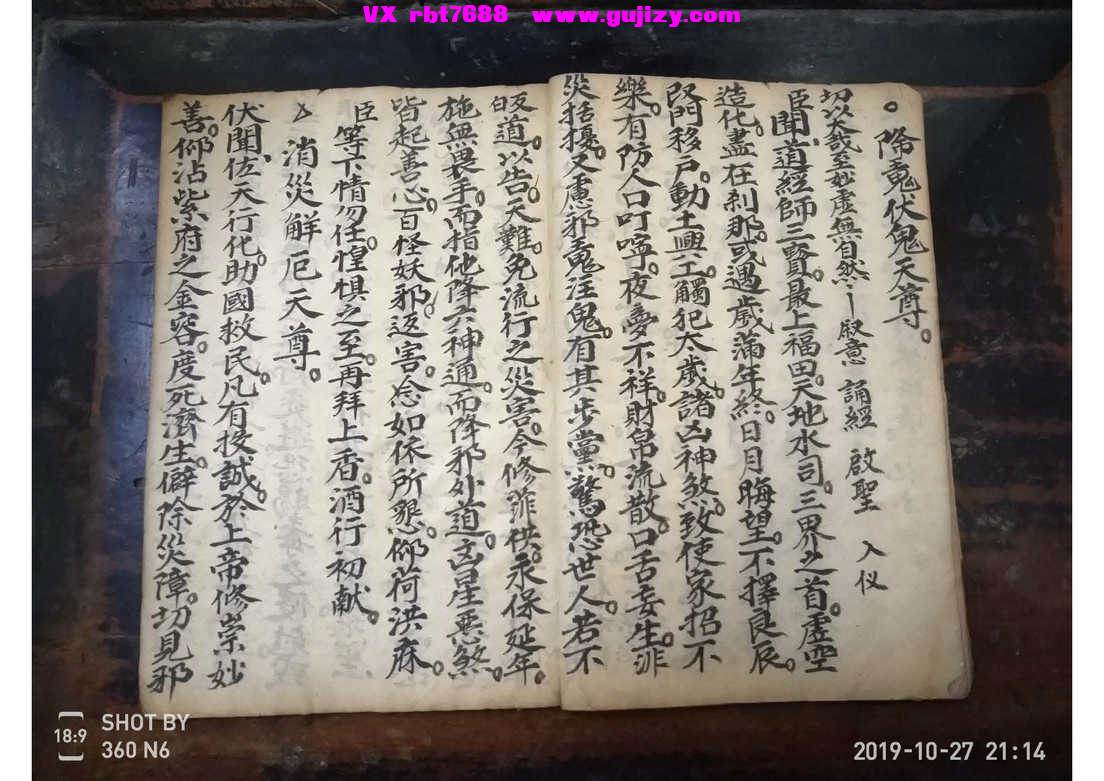 VX rbt7688 www.gujizy.com
降魔伏鬼天尊。
切以大哉至妙虛無自然 叙意 誦經 啟聖 入仪
臣聞道經師三寶。最上福田。天地水司。三界之首。虛空
造化。盡在刹那。或遇歲滿年終。日月晦望。不擇良辰。
竪門移戶。動土興工。觸犯大歲。諸凶神煞。致使家招不
樂。有防人口叮嚀。夜夢不祥。財帛流散。口舌妄生。非
災括擾。又慮邪魔注鬼。有其步黨。驚恐世人。若不
皈道。以告。天難免流行之災害。今修菲供。永保延年。
施無畏手。而指他降六神通。而降邪外道。凶星悪煞。
皆起善心。百怪妖邪。返害。念如依所懇。仰荷洪庥。
臣等下情勿任。惶惧之至。再拜上香。酒行初献。
消災解厄天尊。
伏聞佐天行化。助國救民。凡有投誠。於上帝修崇妙
善。仰沾紫府之金容。度死濟生。僻除災障。切見邪
SHOT BY
18:9
360 N6
2019-10-27 21:14